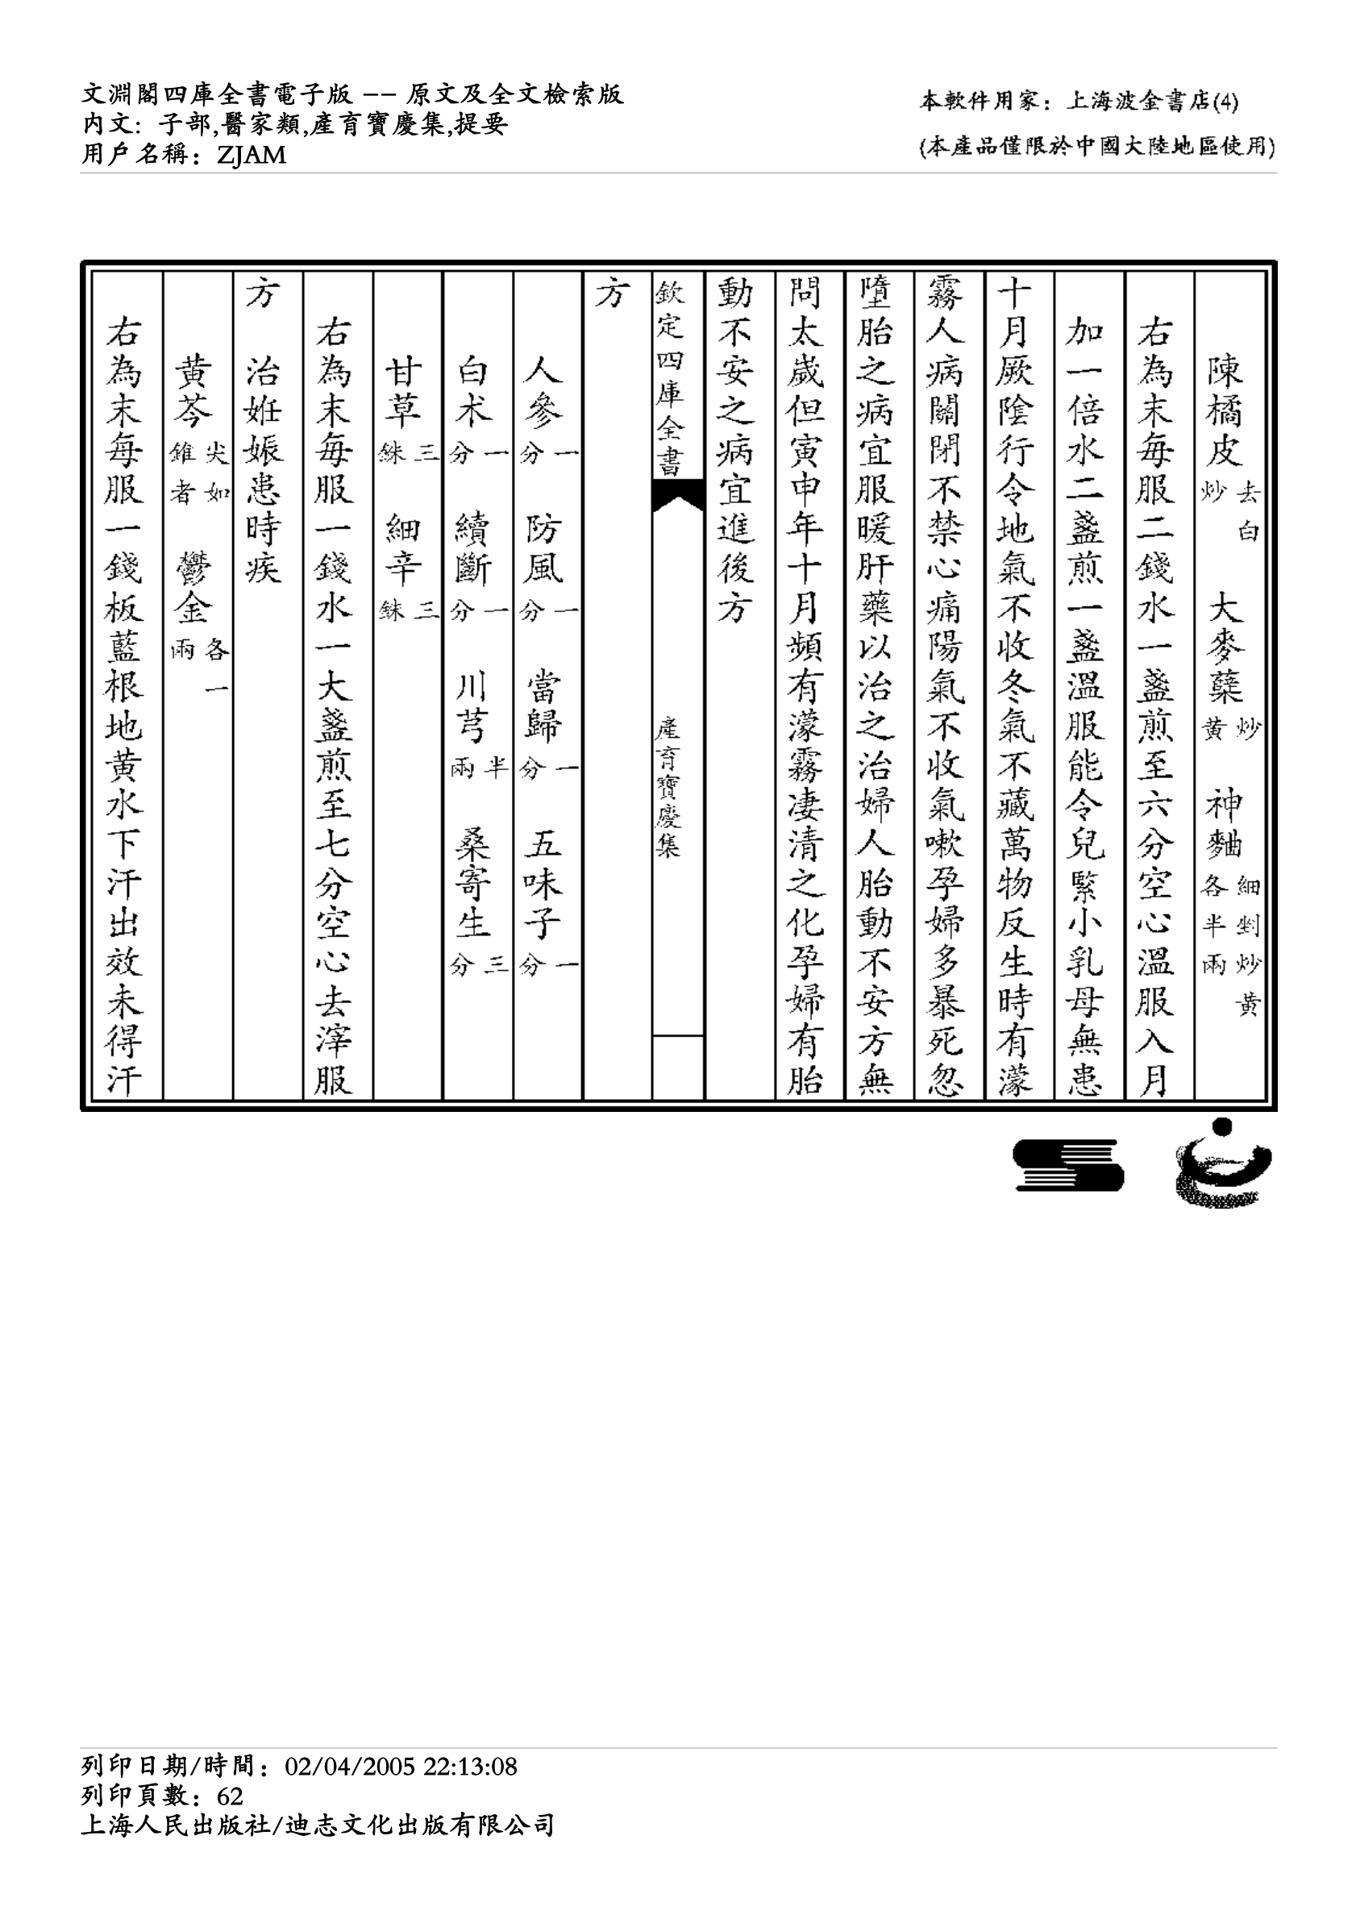 文淵閣四庫全書電子版 -- 原文及全文檢索版
内文: 子部,醫家類,產育寶慶集,提要
用戶名稱: ZJAM
本軟件用家: 上海波金書店(4)
(本產品僅限於中國大陸地區使用)
陳橘皮去白炒 大麥蘗炒黄 神麯細剉炒黄各半兩
右為末每服二錢水一盞煎至六分空心溫服入月
加一倍水二盞煎一盞溫服能令兒緊小乳母無患
十月厥陰行令地氣不收冬氣不藏萬物反生時有濛
霧人病關閉不禁心痛陽氣不收氣嗽孕婦多暴死忽
墮胎之病宜服暖肝藥以治之治婦人胎動不安方無
問太歲但寅申年十月頻有濛霧凄清之化孕婦有胎
動不安之病宜進後方
欽定四庫全書 產育寶慶集
方
人參一分 防風一分 當歸一分 五味子一分
白术一分 續斷一分 川芎半兩 桑寄生三分
甘草三銖 細辛三銖
右為末每服一錢水一大盞煎至七分空心去滓服
方 治姙娠患時疾
黄芩尖如錐者 鬱金各一兩
右為末每服一錢板藍根地黄水下汗出效未得汗
列印日期/時間: 02/04/2005 22:13:08
列印頁數: 62
上海人民出版社/迪志文化出版有限公司